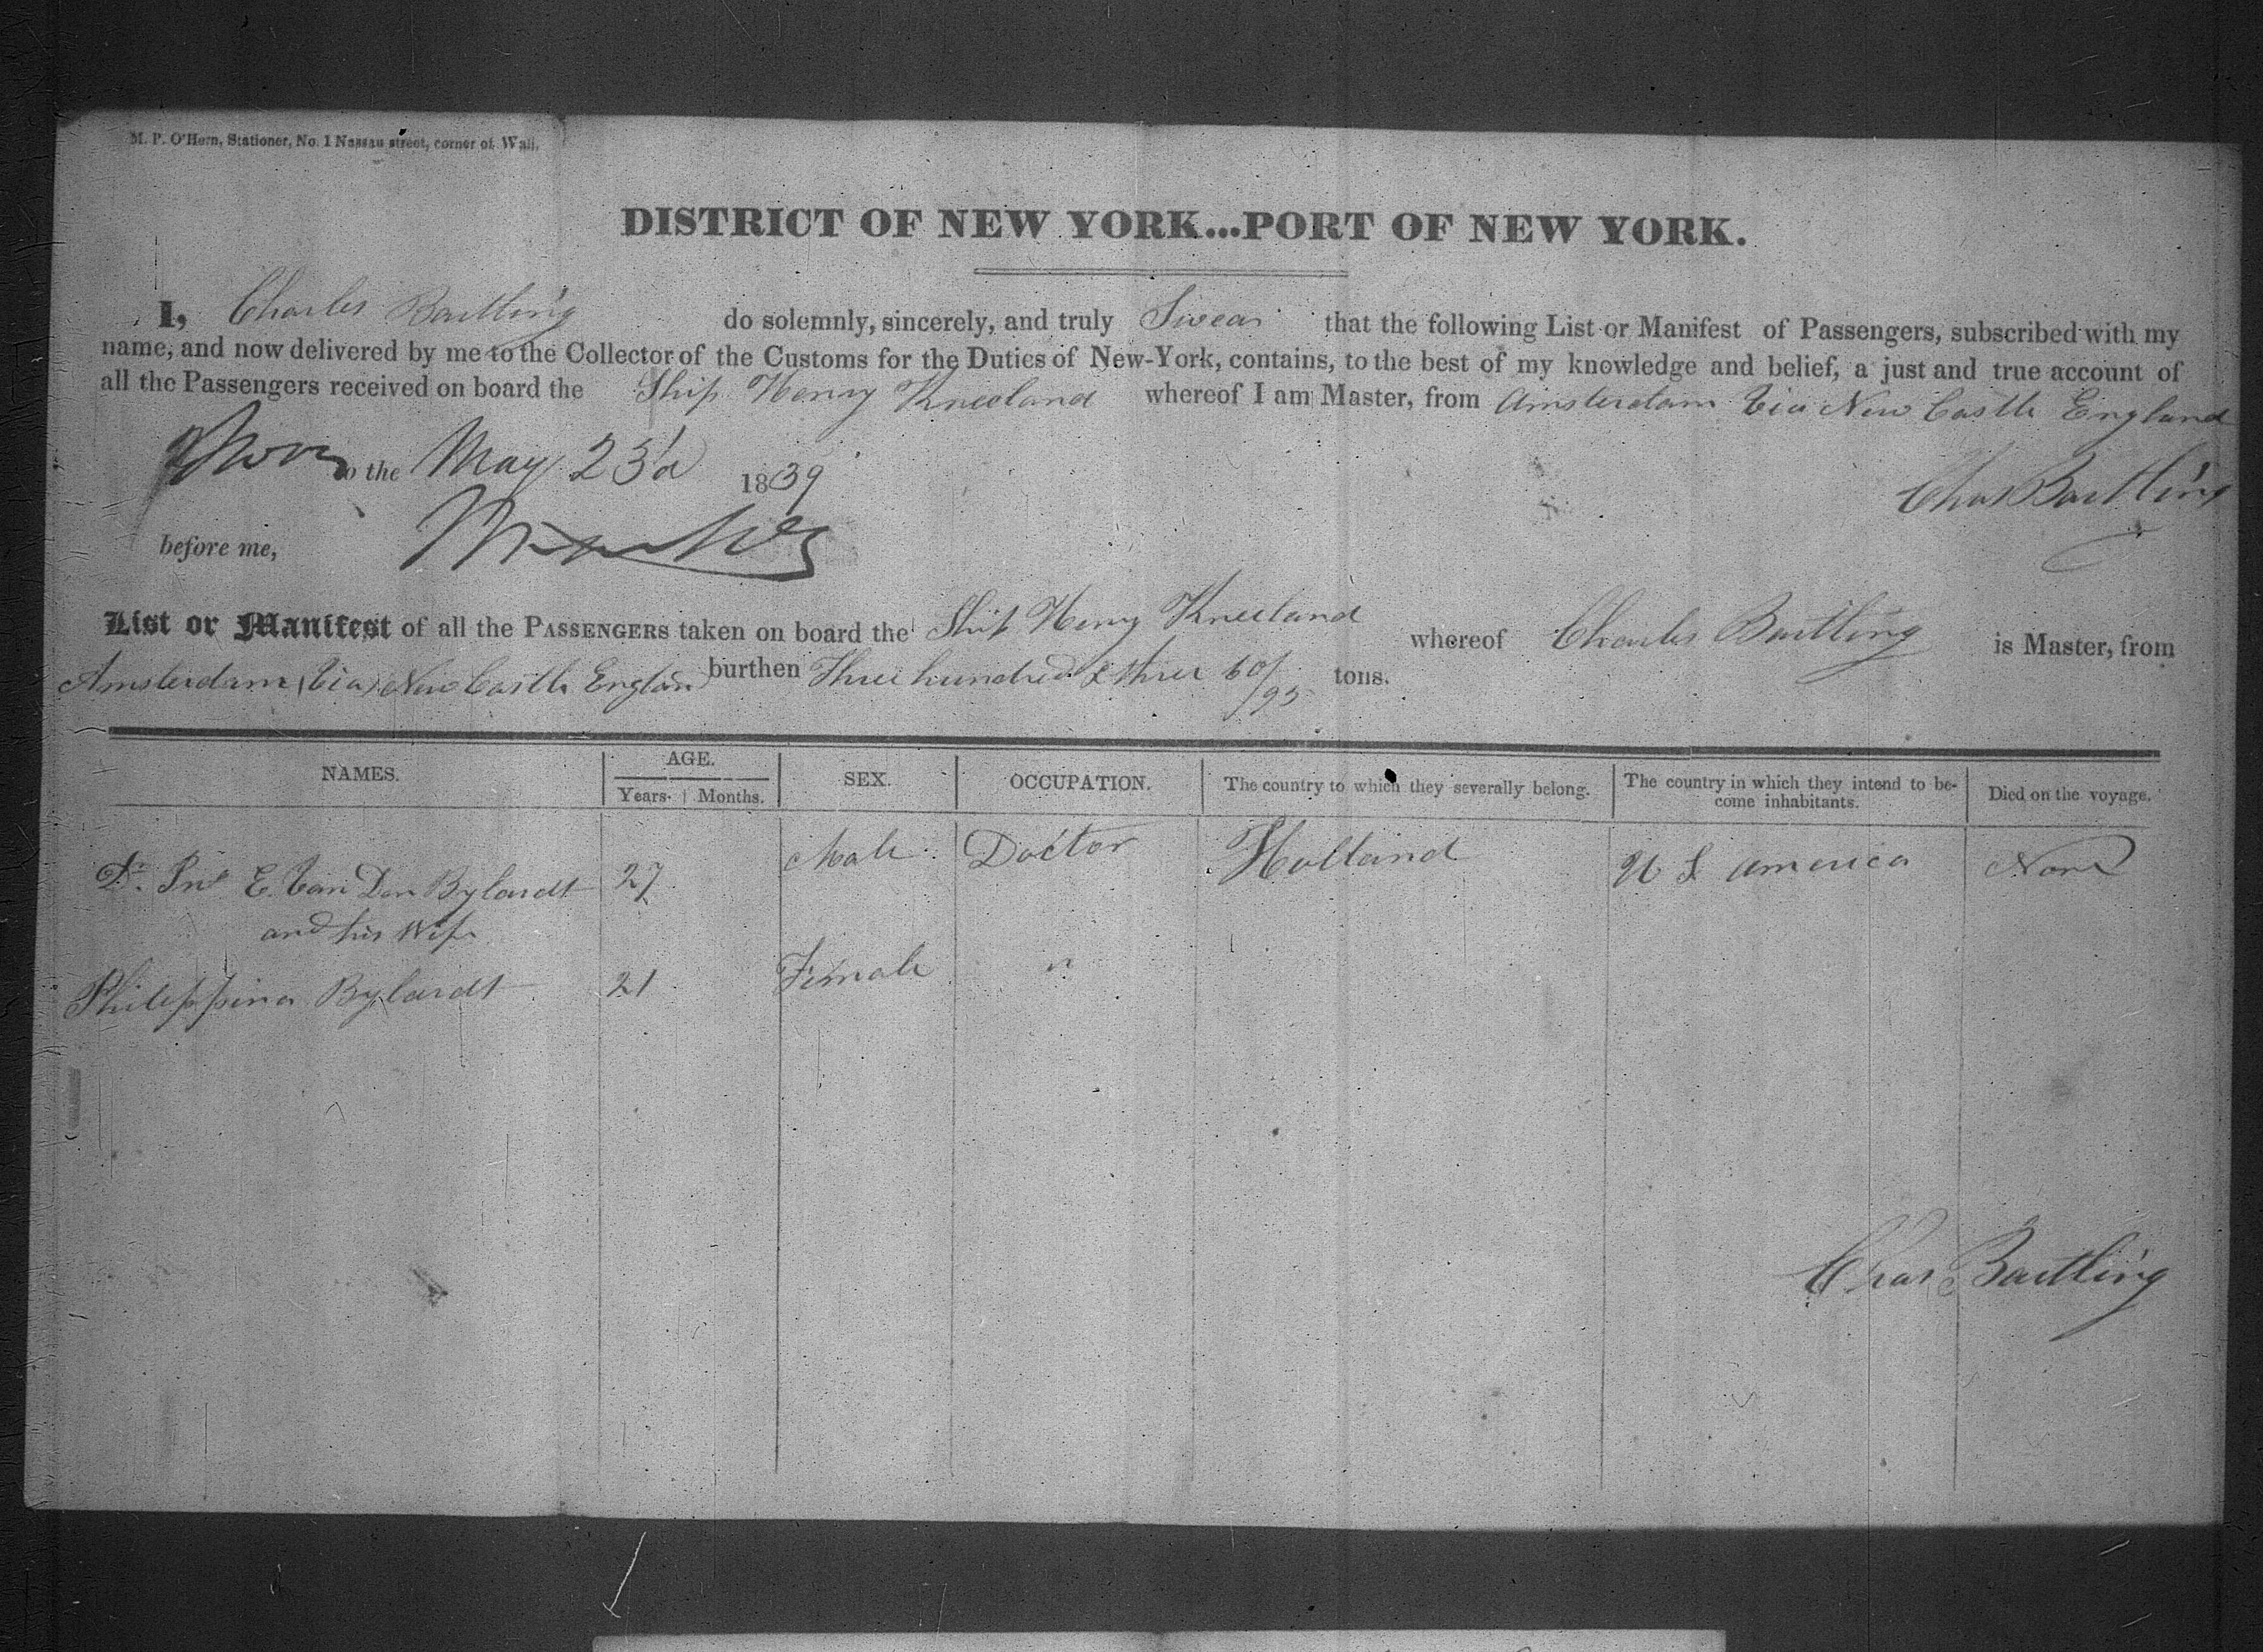 M. P. O'Hern, Stationer, No. 1 Nassau street, corner of Wall.
DISTRICT OF NEW YORK...PORT OF NEW YORK.
I, Charles Bartling do solemnly, sincerely, and truly Swear that the following List or Manifest of Passengers, subscribed with my
name, and now delivered by me to the Collector of the Customs for the Duties of New-York, contains, to the best of my knowledge and belief, a just and true account of
all the Passengers received on board the Ship Henry Kneeland whereof I am Master, from Amsterdam Via New Castle England
Sworn to the May 23d 1839
Chas Bartling
before me,
List or Manifest of all the PASSENGERS taken on board the Ship Henry Kneeland whereof Charles Bartling is Master, from
Amsterdam (Via) New Castle England burthen Three hundred & three 60/95 tons.
NAMES. AGE. SEX. OCCUPATION. The country to which they severally belong. The country in which they intend to be-come inhabitants. Died on the voyage.
Years. Months.
Dr. Jno E. Van Den Bylardt 27 Male Doctor Holland U S America None
and his Wife
Philippina Bylardt 21 Female "
Chas Bartling